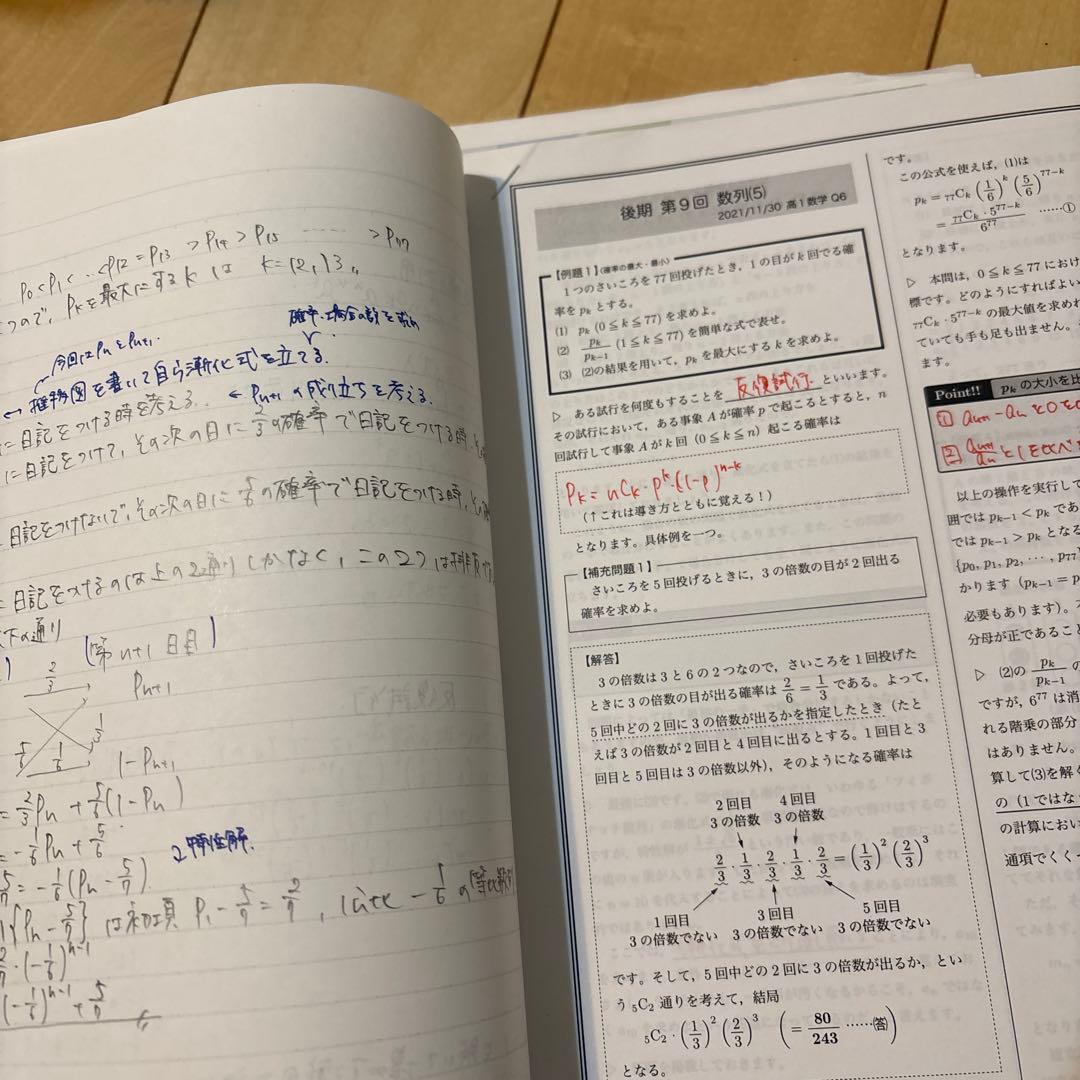 P₀<P₁< ‥ <P₁₂ = P₁₃ > P₁₄ > P₁₅ ‥‥‥ > P₇₇
ので、Pₖを最大にするkは k=12,13
今回はPₙとPₙ₊₁
← 推移図を書いて自ら漸化式を立てる.
← Pₙ₊₁の成り立ちを考える.
に日記をつける時を考える.
に日記をつけて、その次の日に2/3の確率で日記をつける時、
日記をつけないで、その次の日に5/6の確率で日記をつける時、
日記をつけるのは上の2通りしかなく、この2つは排反
下の通り
(第n+1日目)
2/3
Pₙ₊₁
1/3
5/6
1/6
1-Pₙ₊₁
= 2/3Pₙ + 5/6(1-Pₙ)
= -1/6Pₙ + 5/6
特性解.
5/7 = -1/6(Pₙ - 5/7)
{Pₙ - 5/7} は初項 P₁ - 5/7 = 2/7, 公比 -1/6の等比数列
2/7·(-1/6)ⁿ⁻¹
(-1/6)ⁿ⁻¹ + 5/7
後期 第9回 数列(5)
2021/11/30 高1数学 Q6
【例題1】(確率の最大・最小)
1つのさいころを77回投げたとき，1の目がk回でる確
率をpₖとする．
(1) pₖ (0≦k≦77)を求めよ．
(2) pₖ/pₖ₋₁ (1≦k≦77)を簡単な式で表せ．
(3) (2)の結果を用いて，pₖを最大にするkを求めよ．
▷ ある試行を何度もすることを 反復試行 といいます．
その試行において，ある事象Aが確率pで起こるとすると，n
回試行して事象Aがk回 (0≦k≦n) 起こる確率は
Pₖ = ₙCₖ・pᵏ・(1-p)ⁿ⁻ᵏ
(↑これは導き方とともに覚える！)
となります．具体例を一つ．
【補充問題1】
さいころを5回投げるときに，3の倍数の目が2回出る
確率を求めよ．
【解答】
3の倍数は3と6の2つなので，さいころを1回投げた
ときに3の倍数の目が出る確率は 2/6 = 1/3 である．よって，
5回中どの2回に3の倍数が出るかを指定したとき (たと
えば3の倍数が2回目と4回目に出るとする．1回目と3
回目と5回目は3の倍数以外)，そのようになる確率は
2回目 4回目
3の倍数 3の倍数
2/3 · 1/3 · 2/3 · 1/3 · 2/3 = (1/3)² (2/3)³
1回目 3回目 5回目
3の倍数でない 3の倍数でない 3の倍数でない
です．そして，5回中どの2回に3の倍数が出るか，とい
う ₅C₂ 通りを考えて，結局
₅C₂ · (1/3)² (2/3)³ (= 80/243 ……(答))
となる．
です．
この公式を使えば，(1)は
pₖ = ₇₇Cₖ (1/6)ᵏ (5/6)⁷⁷⁻ᵏ
= ₇₇Cₖ · 5⁷⁷⁻ᵏ / 6⁷⁷ ……①
となります．
▷ 本問は，0≦k≦77におけ
標です．どのようにすればよい
₇₇Cₖ · 5⁷⁷⁻ᵏ の最大値を求めれ
ていても手も足も出ません．
ます．
Point!! pₖの大小を比
① aₙ₊₁-aₙ と0を
② aₙ₊₁/aₙ と1を比べ
以上の操作を実行して
囲では pₖ₋₁ < pₖ であ
では pₖ₋₁ > pₖ となる
{p₀, p₁, p₂, ⋯, p₇₇
かります (pₖ₋₁ = p
必要もあります)．
分母が正であること
▷ (2)の pₖ/pₖ₋₁
ですが，6⁷⁷ は消
れる階乗の部分
はありません．
算して(3)を解く
の (1ではな
の計算におい
通項でくく